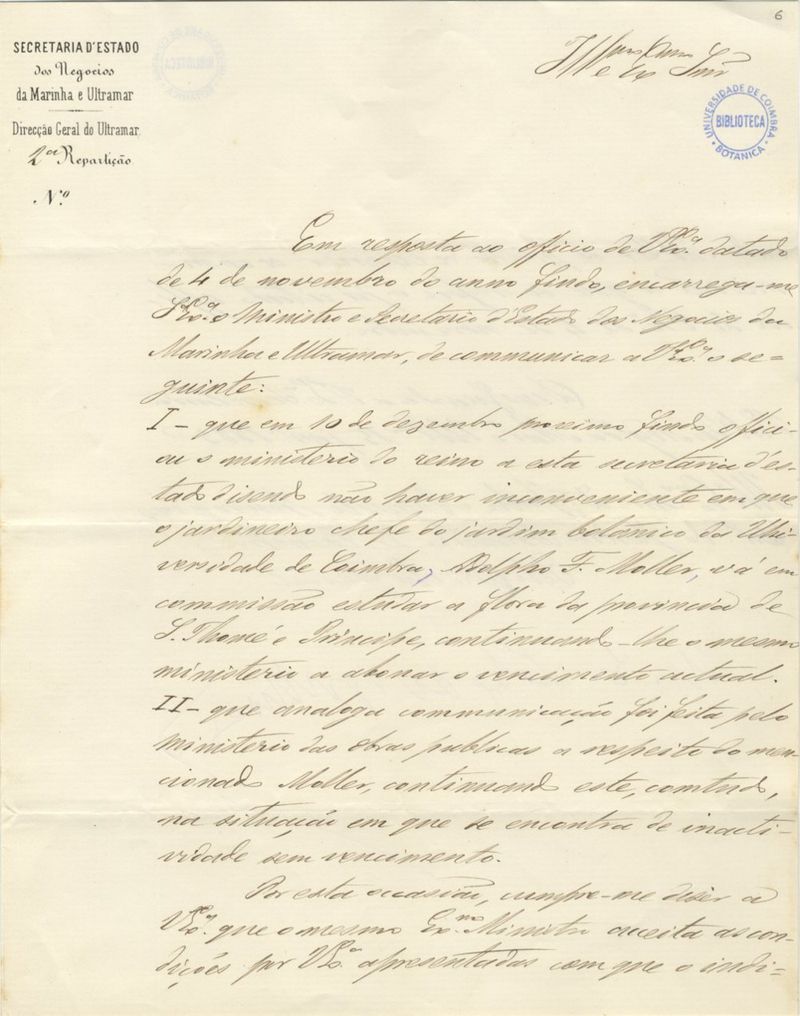 6
SECRETARIA D'ESTADO
dos Negocios
da Marinha e Ultramar
Direcção Geral do Ultramar
2ª Repartição
N.º
Ill.mo e Ex.mo Snr
UNIVERSIDADE DE COIMBRA
BIBLIOTECA
BOTANICA
Em resposta ao officio de V. Ex.ª datado
de 4 de novembro do anno findo, encarrega-me
S. Ex.ª o Ministro e Secretario d'Estado dos Negocios da
Marinha e Ultramar, de communicar a V. Ex.ª o se-
guinte:
I - que em 10 de dezembro proximo findo offici-
ou o ministerio do reino a esta secretaria d'es-
tado disendo não haver inconveniente em que
o jardineiro chefe do jardim botanico da Uni-
versidade de Coimbra, Adolpho F. Moller, vá em
commissão estudar a flora da provincia de
S. Thomé e Principe, continuando-lhe o mesmo
ministerio a abonar o vencimento actual.
II - que analoga communicação foi feita pelo
ministerio das obras publicas a respeito do men-
cionado Moller, continuando este, comtudo,
na situação em que se encontra de inacti-
vidade sem vencimento.
Por esta occasião, cumpre-me diser a
V. Ex.ª que o mesmo Ex.mo Ministro acceita as con-
dições por V. Ex.ª apresentadas com que o indi-